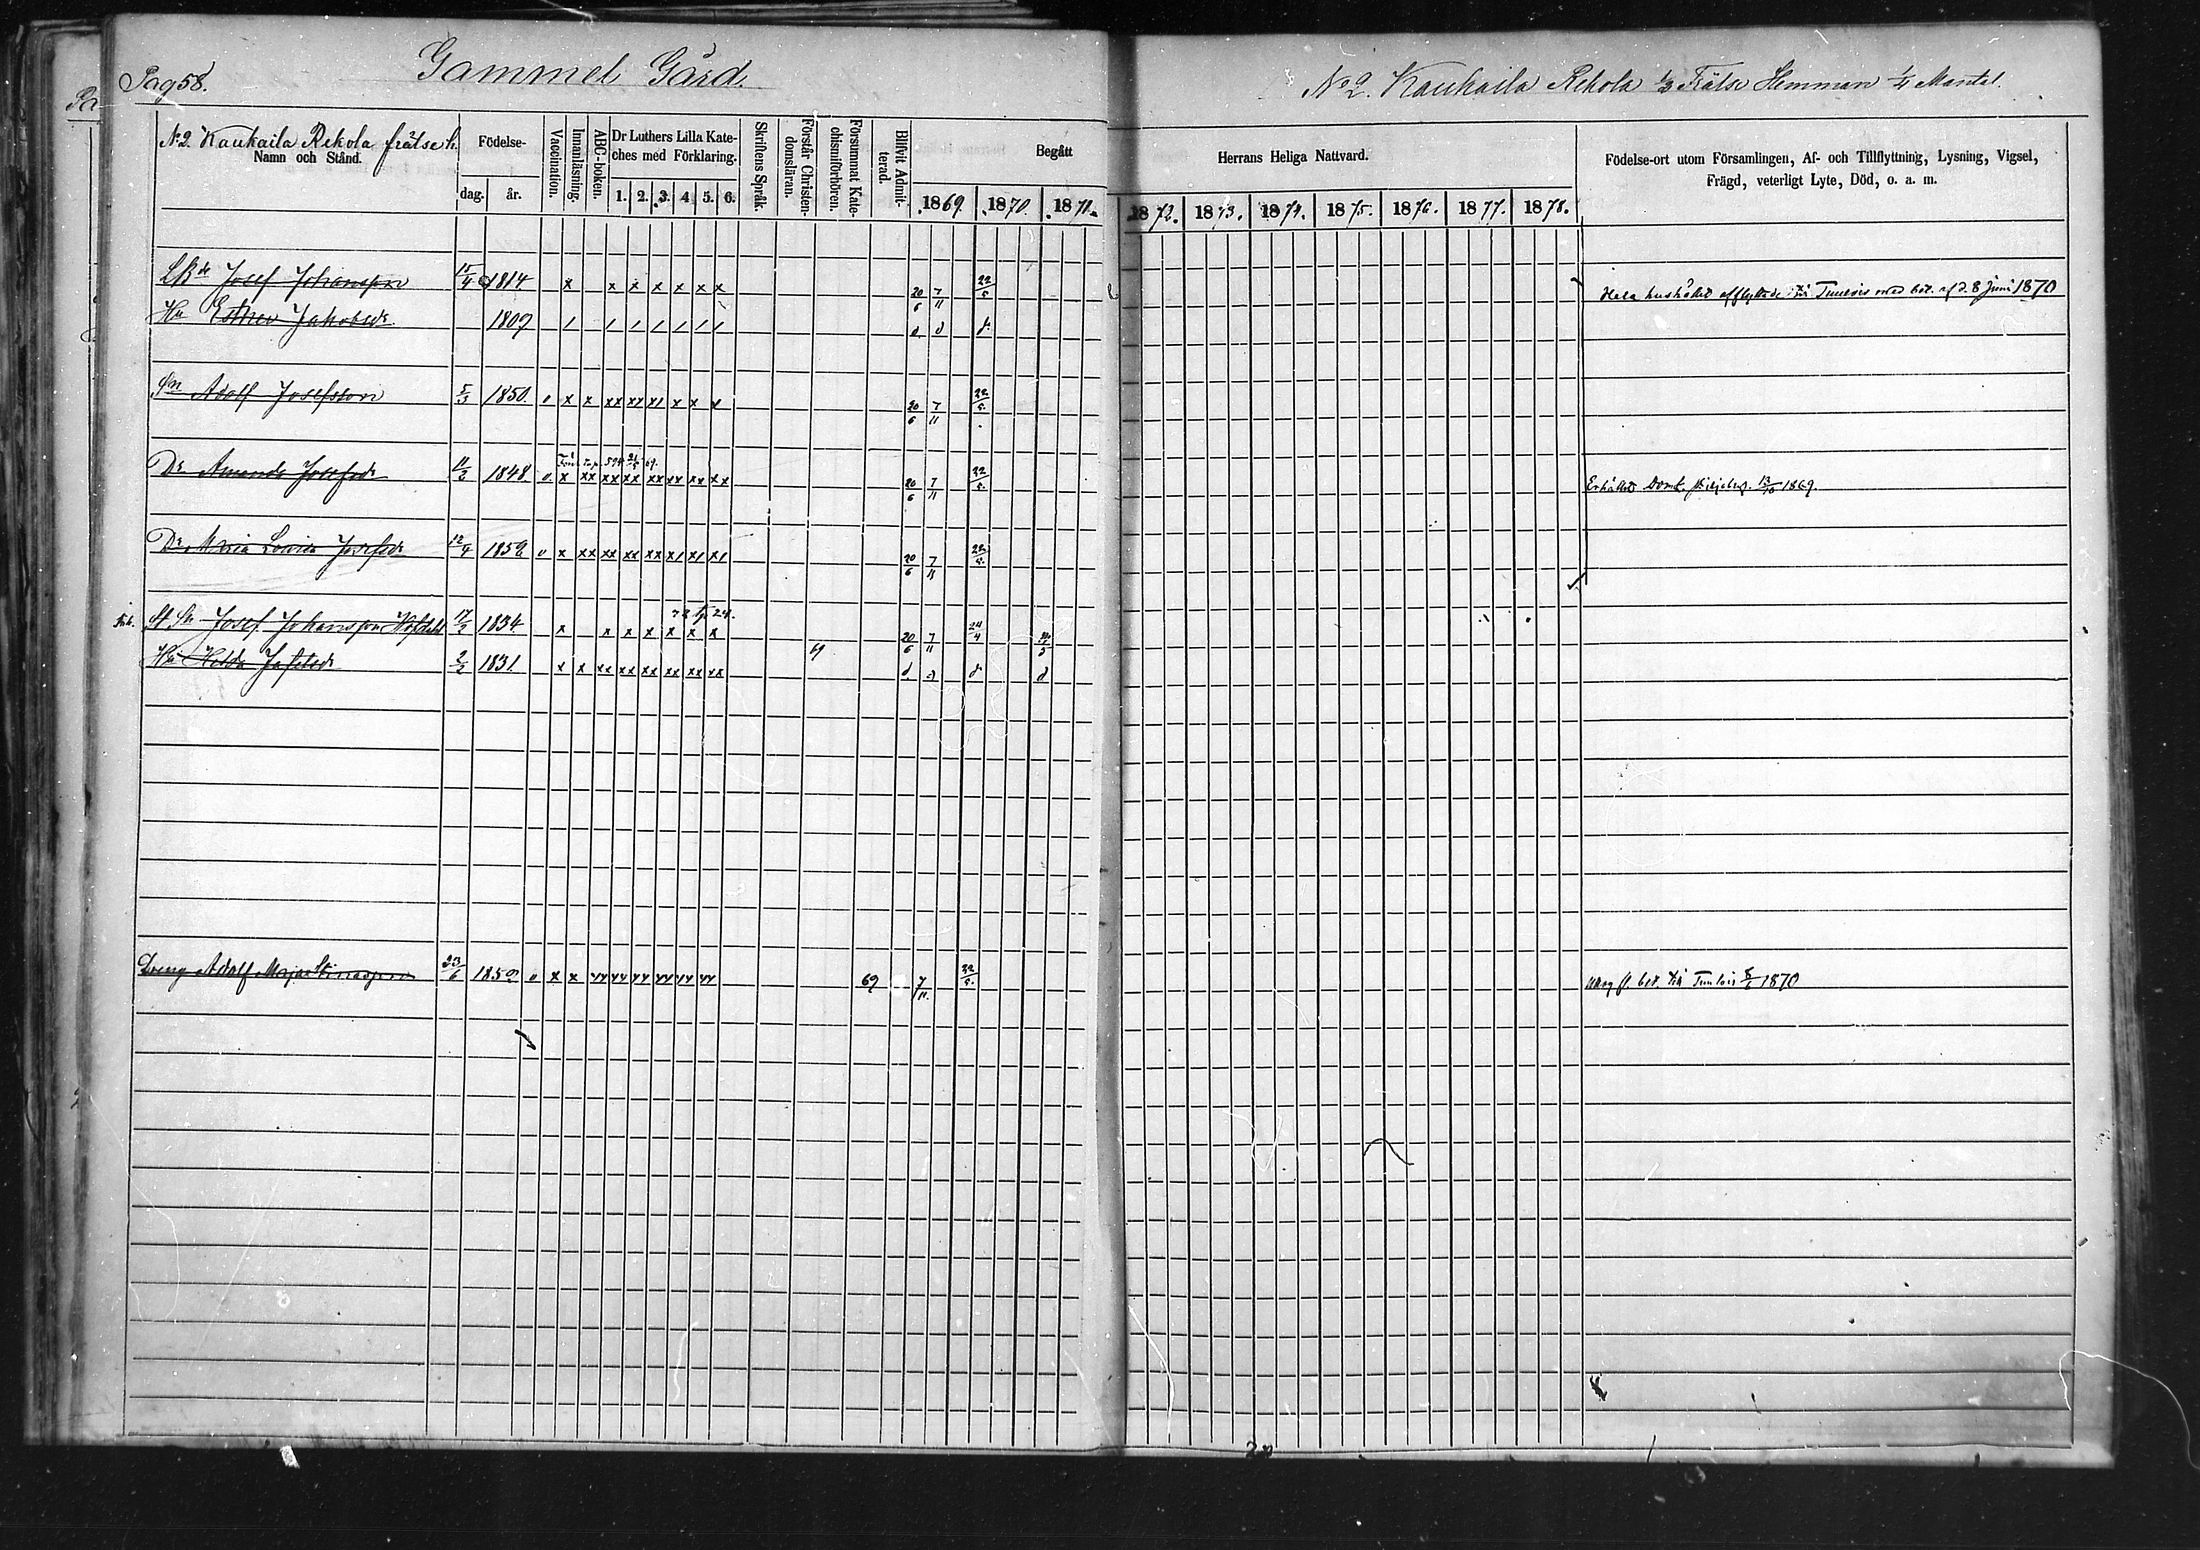 Pag 58.
Gammel Gård.
No 2. Kaukaila Rekola 1/3 Frälse Hemman 1/4 Mantal.
No 2 Kaukaila Rekola frälse h.
Namn och Stånd.
Födelse-
dag. år.
Vaccination.
Innanläsning.
ABC-boken.
Dr Luthers Lilla Kate-
ches med Förklaring.
1. 2. 3. 4. 5. 6.
Skriftens Språk.
Förstår Christen-
domsläran.
Försummat Kate-
chismiförhören.
Blifvit Admit-
terad.
Begått
Herrans Heliga Nattvard.
1869. 1870. 1871. 1872. 1873. 1874. 1875. 1876. 1877. 1878.
Födelse-ort utom Församlingen, Af- och Tillflyttning, Lysning, Vigsel,
Frägd, veterligt Lyte, Död, o. a. m.
Josef Johansson 15/4 1814 x x x x x x x 20/6 7/11 22/5 Hela hushållet afflyttade till Tunlois med bet. af d. 8 Juni 1870
Hu Esther Jakobsdr 1809 / / / / / / / d d d
Sn Adolf Josefsson 5/3 1850 v x x xx xx x/ x x x 20/6 7/11 22/5
Dr Amanda Josefsdr 11/2 1848 v x xx xx xx xx xx xx xx 20/6 7/11 22/5 Erhållit 13/10 1869.
Dr Maria Lovisa Josefsdr 12/9 1852 v x xx xx xx xx x/ x/ x/ 20/6 7/11 22/5
Josef Johansson 17/2 1834 x x x x x x x 20/6 7/11 24/4
Hu Hilda 2/2 1831 x x xx xx xx xx xx xx 69 d d d d
Dreng Adolf Maja Stinasson 23/6 1850 v x x 69 7/11 22/5 Uttog fl. bet. till Tunlois 8/6 1870